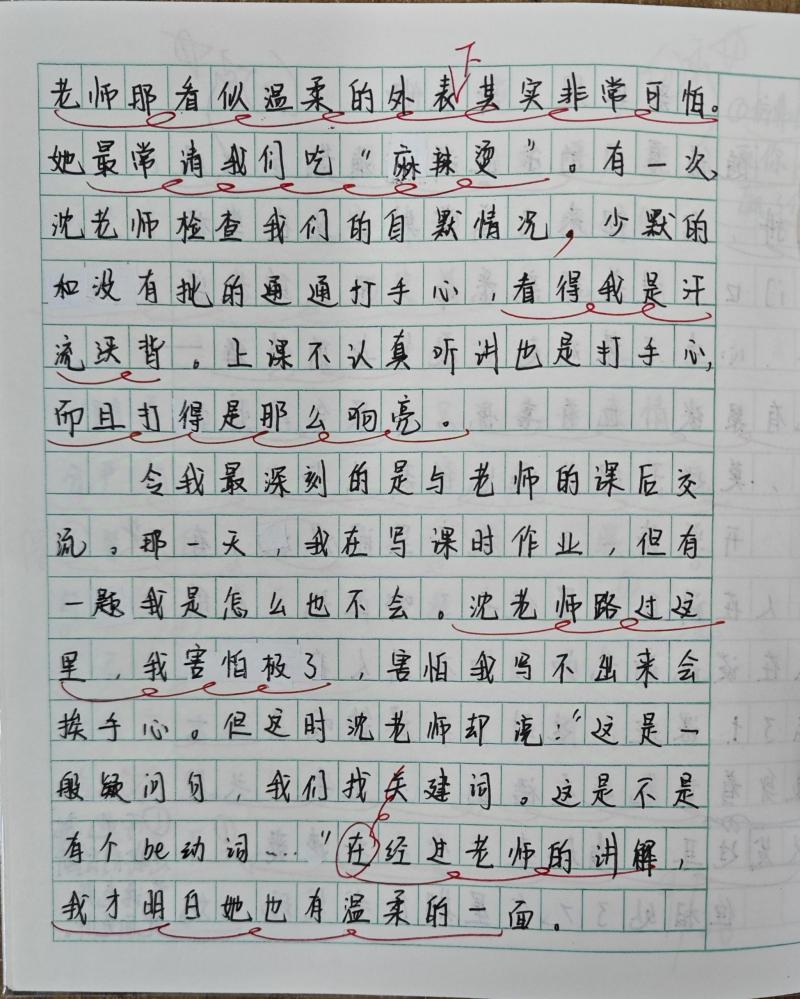 下
老师那看似温柔的外表其实非常可怕。
她最常请我们吃“麻辣烫”。有一次,
沈老师检查我们的自默情况,少默的
和没有批的通通打手心,看得我是汗
流浃背。上课不认真听讲也是打手心,
而且打得是那么响亮。
令我最深刻的是与老师的课后交
流。那一天,我在写课时作业,但有
一题我是怎么也不会。沈老师路过这
里,我害怕极了,害怕我写不出来会
挨手心。但这时沈老师却说:“这是一
般疑问句,我们找关建词。这是不是
有个be动词....”在经过老师的讲解,
我才明白她也有温柔的一面。